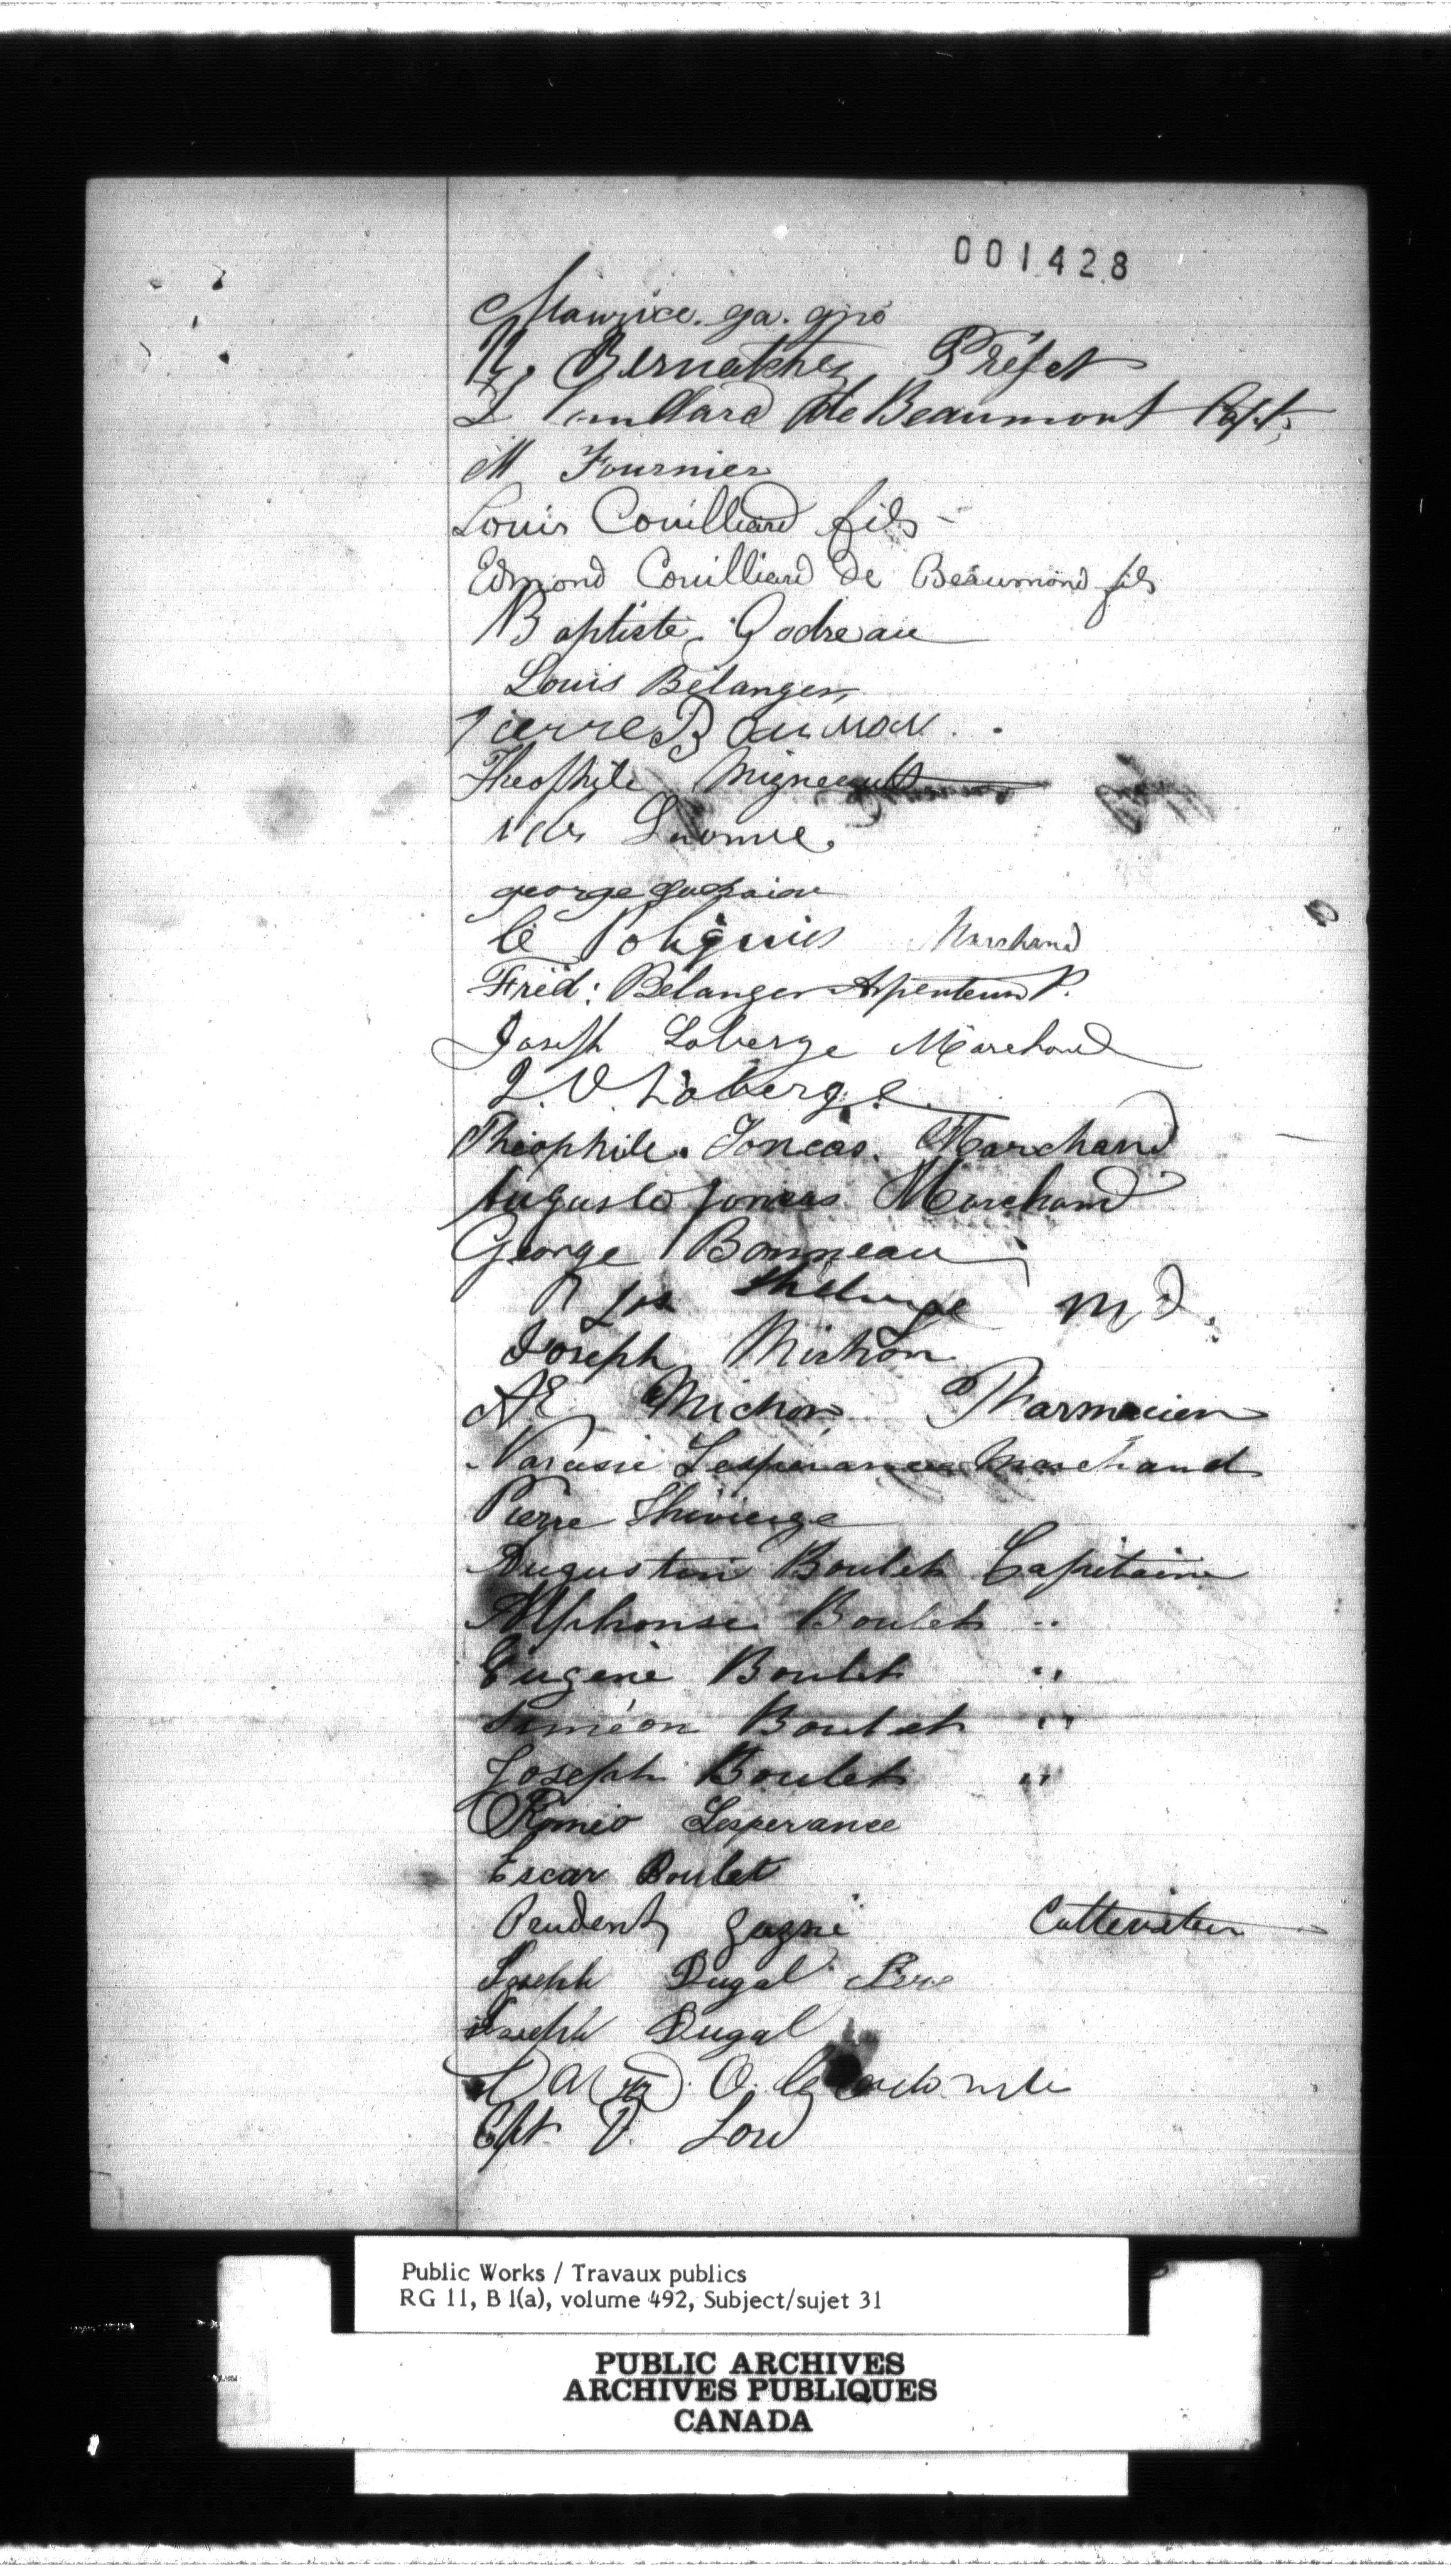 001428
Maurice. ga. gné
N. Bernatchez Préfet
L Couillard de Beaumont Capt.
M Fournier
Louis Couilliard fils
Edmond Couilliard de Beaumond fils
Baptiste Godreau
Louis Bélanger
Pierre Boumon
Theophile Migneault
george
Marchand
Fréd: Bélanger Arpenteur P.
Joseph Laberge Marchand
J. O Laberge
Théophile. Joncas. Marchand
Auguste Joncas Marchand
George Bonneau
Jos M D.
Joseph Michon
AE Michon Pharmacien
Narcisse Lesperance Marchand
Pierre Thivierge
Augustin Boulet Capitaine
Alphonse Boulet "
Eugène Boulet "
Siméon Boulet "
Joseph Boulet "
Roméo Lesperance
Escar Boulet
Prudent gagné Cultivateur
Joseph Dugal Père
Joseph Dugal
Cpt V. Lord
Public Works / Travaux publics
RG 11, B 1(a), volume 492, Subject/sujet 31
PUBLIC ARCHIVES
ARCHIVES PUBLIQUES
CANADA